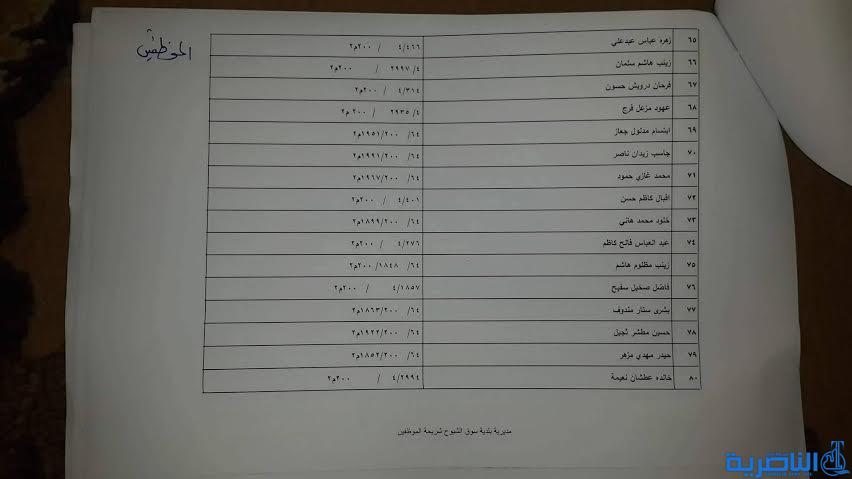 الموظفين
٦٥ زهره عباس عبدعلي ٤/٤٦٦ / ٢٠٠م٢
٦٦ زينب هاشم سلمان ٤/ ٢٩٩٧ / ٢٠٠م٢
٦٧ فرحان درويش حسون ٤/٣١٤ / ٢٠٠م٢
٦٨ عهود مزعل فرج ٤/ ٢٩٣٥ / ٢٠٠م٢
٦٩ ابتسام مدلول جعاز ٦٤/ ١٩٥١/٢٠٠م٢
٧٠ جاسب زيدان ناصر ٦٤/ ١٩٩١/٢٠٠م٢
٧١ محمد غازي حمود ٦٤/ ١٩٦٧/٢٠٠م٢
٧٢ اقبال كاظم حسن ٤/٤٠١ / ٢٠٠م٢
٧٣ خلود محمد هاني ٦٤/ ١٨٩٩/٢٠٠م٢
٧٤ عبد العباس فالح كاظم ٤/٢٧٦ / ٢٠٠م٢
٧٥ زينب مظلوم هاشم ٦٤/ ١٨٤٨/٢٠٠م٢
٧٦ فاضل صخيل سفيح ٤/١٨٥٧ / ٢٠٠م٢
٧٧ بشرى ستار مندوف ٦٤/ ١٨٦٣/٢٠٠م٢
٧٨ حسين مطشر ثجيل ٦٤/ ١٩٢٢/٢٠٠م٢
٧٩ حيدر مهدي مزهر ٦٤/ ١٨٥٢/٢٠٠م٢
٨٠ خالده عطشان نعيمة ٤/٢٩٩٤ / ٢٠٠م٢
مديرية بلدية سوق الشيوخ شريحة الموظفين
الناصرية